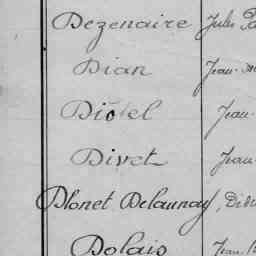 Dezenaire Jules
Dian Jean-
Diotel Jean-
Divet Jean
Blonet Delaunay, Didi
Dolais Jean